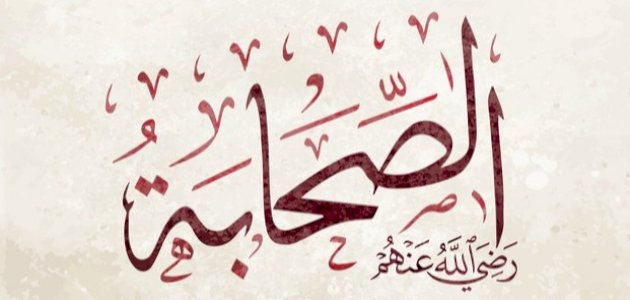 الصَّحَابَةُ
رَضِيَ اللَّهُ عَنْهُمْ